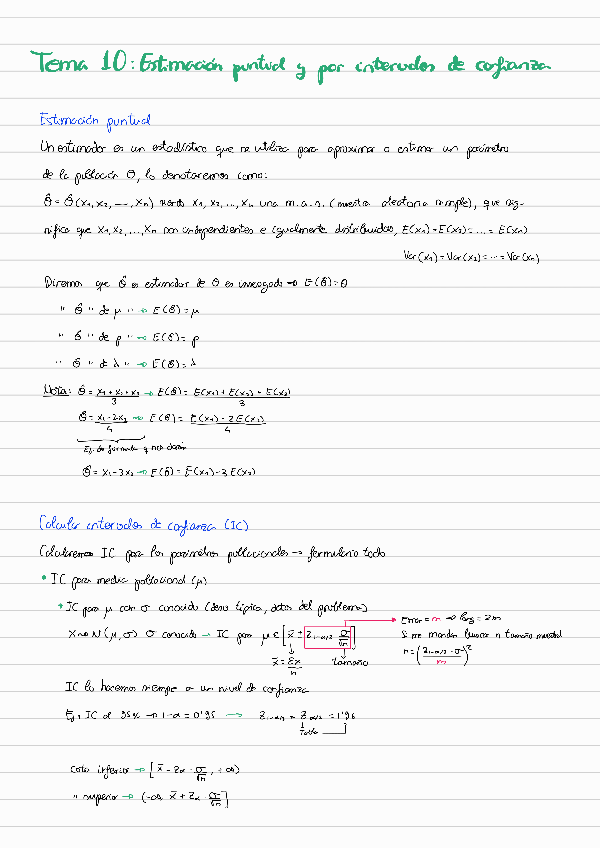 Tema 10: Estimación puntual y por intervalos de confianza
Estimación puntual
Un estimador es un estadístico que se utiliza para aproximar o estimar un parámetro
de la población θ, lo denotaremos como:
θ̂ = θ̂(x₁, x₂, ..., xₙ) siendo x₁, x₂, ..., xₙ una m.a.s. (muestra aleatoria simple), que sig-
nifica que x₁, x₂, ..., xₙ son independientes e igualmente distribuidas, E(x₁) = E(x₂) = ... = E(xₙ)
Var(x₁) = Var(x₂) = ... = Var(xₙ)
Diremos que θ̂ es estimador de θ es insesgado → E(θ̂) = θ
" θ̂ " de μ " → E(θ̂) = μ
" θ̂ " de p " → E(θ̂) = p
" θ̂ " de λ " → E(θ̂) = λ
Nota: θ̂ = (x₁ + x₂ + x₃)/3 → E(θ̂) = (E(x₁) + E(x₂) + E(x₃))/3
θ̂ = (x₁ - 2x₂)/4 → E(θ̂) = (E(x₁) - 2E(x₂))/4
θ̂ = x₁ - 3x₂ → E(θ̂) = E(x₁) - 3E(x₂)
Calcular intervalos de confianza (IC)
Calcularemos IC para los parámetros poblacionales → formulario todo
• IC para media poblacional (μ)
• IC para μ con σ conocida (desv típica, datos del problema)
X ~ N(μ, σ) σ conocida → IC para μ ∈ [x̄ ± z₁₋α/₂ · σ/√n]
Error = m → long = 2m
Si me mandan buscar n tamaño muestral
n = ((z₁₋α/₂ · σ)/m)²
x̄ = Σx/n
tamaño
IC lo hacemos siempre a un nivel de confianza
Ej: IC al 95% → 1-α = 0'95 → z₁₋α/₂ = zα/₂ = 1'96
Tabla
Cota inferior → [x̄ - zα · σ/√n, +∞)
" superior → (-∞, x̄ + zα · σ/√n]